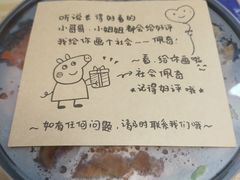 听说长得好看的
小哥哥，小姐姐都会给好评
我给你画个社会——佩奇
~看，给你画啦
社会佩奇
*记得好评哦*
~如有任何问题，请及时联系我们哦~